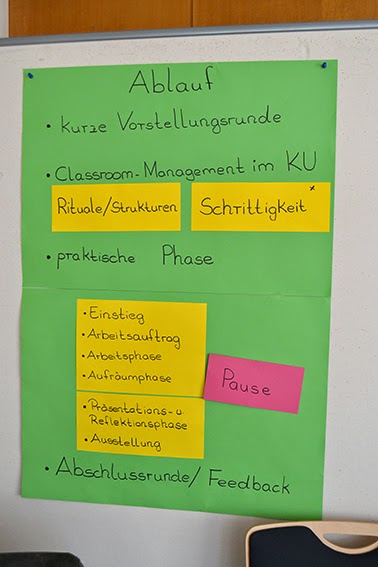 Ablauf
• kurze Vorstellungsrunde
• Classroom-Management im KU
Rituale/Strukturen
Schrittigkeit x
• praktische Phase
• Einstieg
• Arbeitsauftrag
• Arbeitsphase
• Aufräumphase
Pause
• Präsentations- u.
Reflektionsphase
• Ausstellung
• Abschlussrunde/Feedback